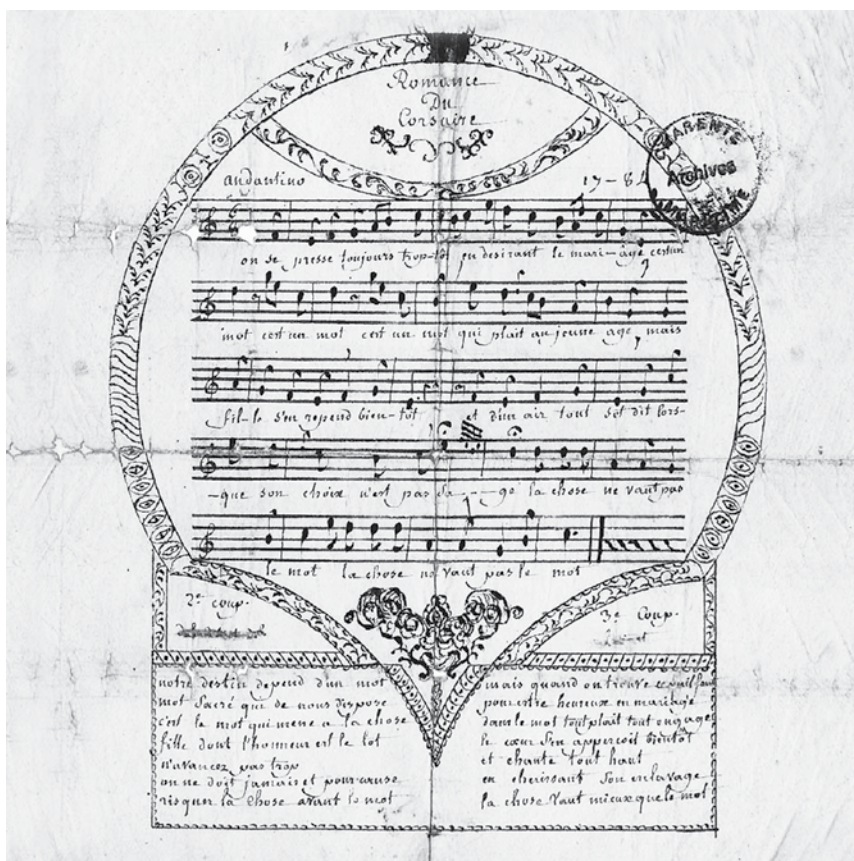 Romance
Du
Corsaire
CHARENTE
Archives
MARITIME
andantino 17-8
on se presse toujours trop-tot en desirant le mari-age cestun
mot cest un mot cest un mot qui plait au jeune age, mais
fil-le s'en repend bien-tot et d'un air tout sot dit lors-
-que son choix n'est pas sa----ge la chose ne vaut pas
le mot la chose ne vaut pas le mot
2e coup.
notre destin depend d'un mot
mot sacré qui de nous dispose
c'est le mot qui mene a la chose
fille dont l'honneur est le lot
n'avancez pas trop
on ne doit jamais et pour cause
risquer la chose avant le mot
3e Coup.
mais quand on trouve
pour etre heureux en mariage
dans le mot tout plait tout engage
le coeur s'en apperçoit bientôt
et chante tout haut
en cherissant son esclavage
la chose vaut mieux que le mot